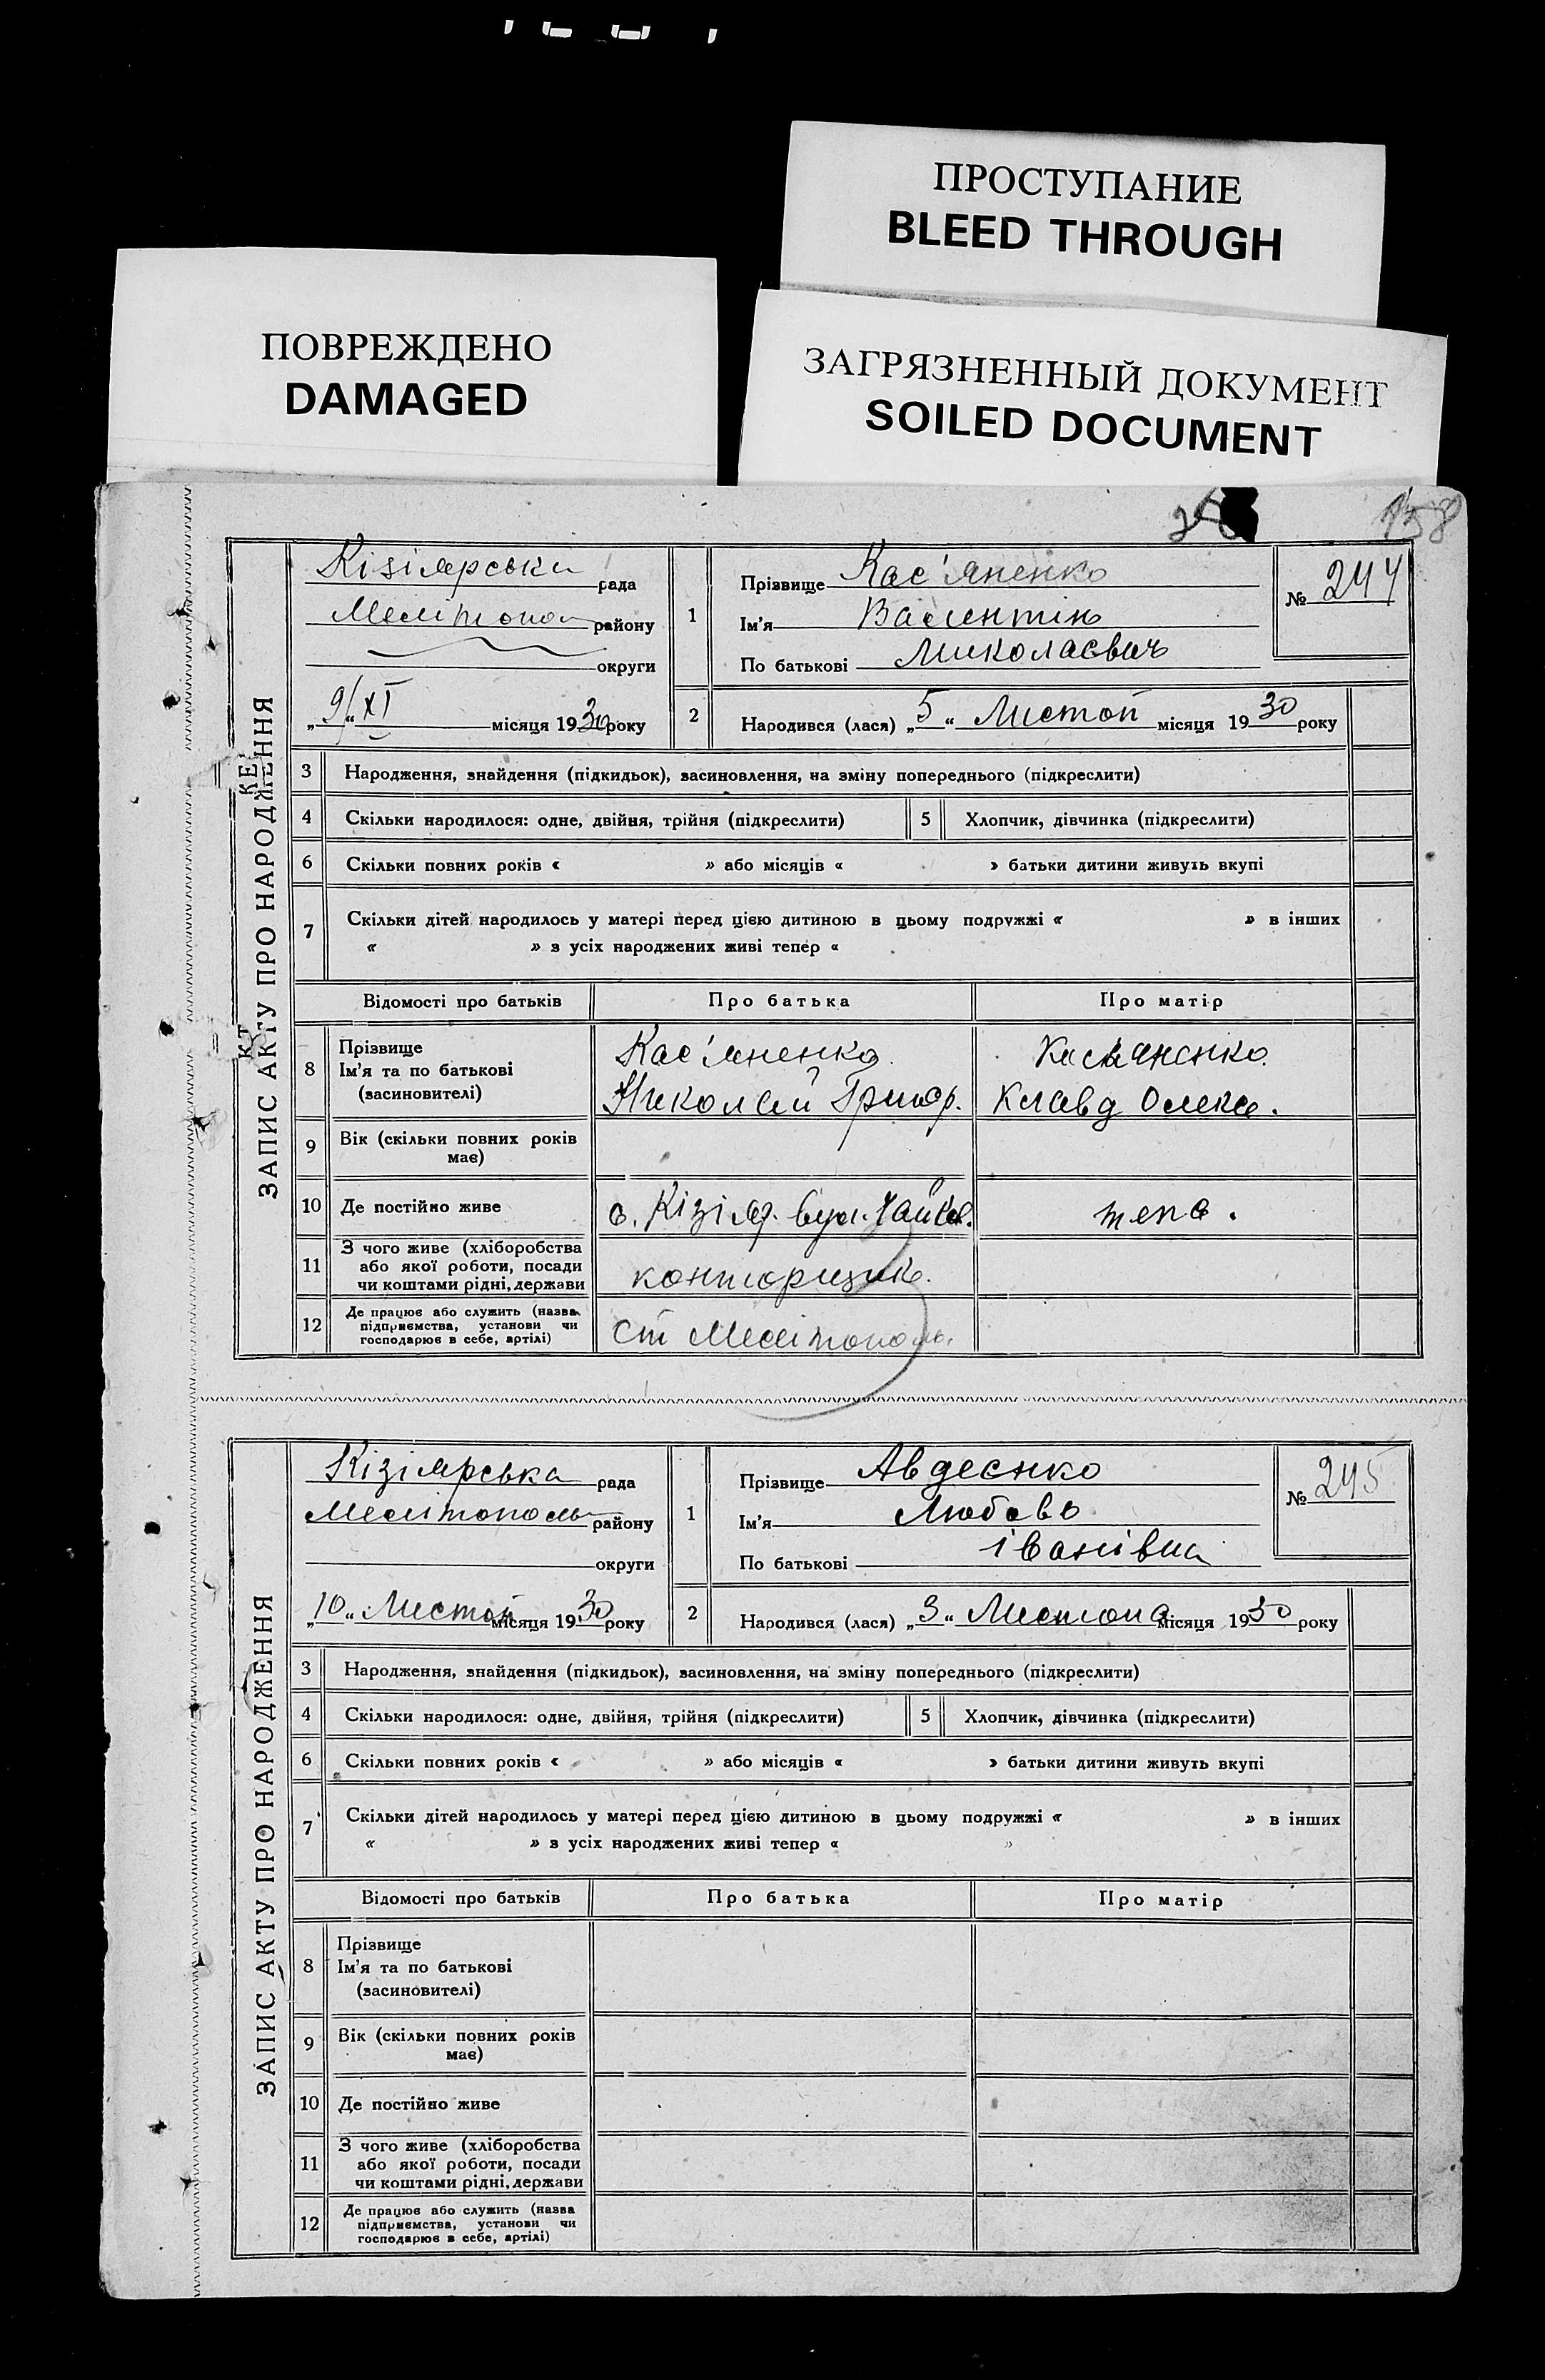 ПРОСТУПАНИЕ
BLEED THROUGH
ПОВРЕЖДЕНО
DAMAGED
ЗАГРЯЗНЕННЫЙ ДОКУМЕНТ
SOILED DOCUMENT
158
ЗАПИС АКТУ ПРО НАРОДЖЕННЯ
Кізіярська рада
Мелітопол району
округи
„9“ XI місяця 1930 року
1
Прізвище Кас'яненко
Ім'я Валентін
По батькові Миколаєвич
№ 244
2
Народився (лася) „5“ Листоп місяця 1930 року
3 Народження, знайдення (підкидьок), засиновлення, на зміну попереднього (підкреслити)
4 Скільки народилося: одне, двійня, трійня (підкреслити) 5 Хлопчик, дівчинка (підкреслити)
6 Скільки повних років « » або місяців « » батьки дитини живуть вкупі
7 Скільки дітей народилось у матері перед цією дитиною в цьому подружжі « » в інших
« » з усіх народжених живі тепер «
Відомості про батьків Про батька Про матір
8 Прізвище
Ім'я та по батькові
(засиновителі)
Кас'яненко
Николай Григор.
Касьяненко.
Клавд Олекс.
9 Вік (скільки повних років
має)
10 Де постійно живе
с. Кізіяр. вул. Чайков.
тепа.
11 З чого живе (хліборобства
або якої роботи, посади
чи коштами рідні, держави
конторщик.
12 Де працює або служить (назва
підприємства, установи чи
господарює в себе, артілі)
Ст Мелітополь.
ЗАПИС АКТУ ПРО НАРОДЖЕННЯ
Кізіярська рада
Мелітополь району
округи
„10“ Листоп місяця 1930 року
1
Прізвище Авдеєнко
Ім'я Любовь
По батькові івонівна
№ 245
2
Народився (лася) „3“ Листопа місяця 1930 року
3 Народження, знайдення (підкидьок), засиновлення, на зміну попереднього (підкреслити)
4 Скільки народилося: одне, двійня, трійня (підкреслити) 5 Хлопчик, дівчинка (підкреслити)
6 Скільки повних років « » або місяців « » батьки дитини живуть вкупі
7 Скільки дітей народилось у матері перед цією дитиною в цьому подружжі « » в інших
« » з усіх народжених живі тепер « »
Відомості про батьків Про батька Про матір
8 Прізвище
Ім'я та по батькові
(засиновителі)
9 Вік (скільки повних років
має)
10 Де постійно живе
11 З чого живе (хліборобства
або якої роботи, посади
чи коштами рідні, держави
12 Де працює або служить (назва
підприємства, установи чи
господарює в себе, артілі)